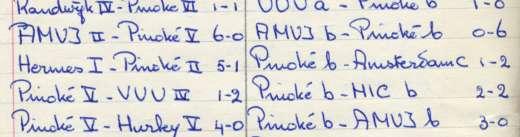 Randwijk IV - Pinoké VI 1-1
AMVJ II - Pinoké V 6-0
Hermes I - Pinoké II 5-1
Pinoké V - VUU IV 1-2
Pinoké V - Hurley V 4-0
VVV a - Pinoké b 1-0
AMVJ b - Pinoké b 0-6
Pinoké b - Amsterdam C 1-2
Pinoké b - HIC b 2-2
Pinoké b - AMVJ b 3-0